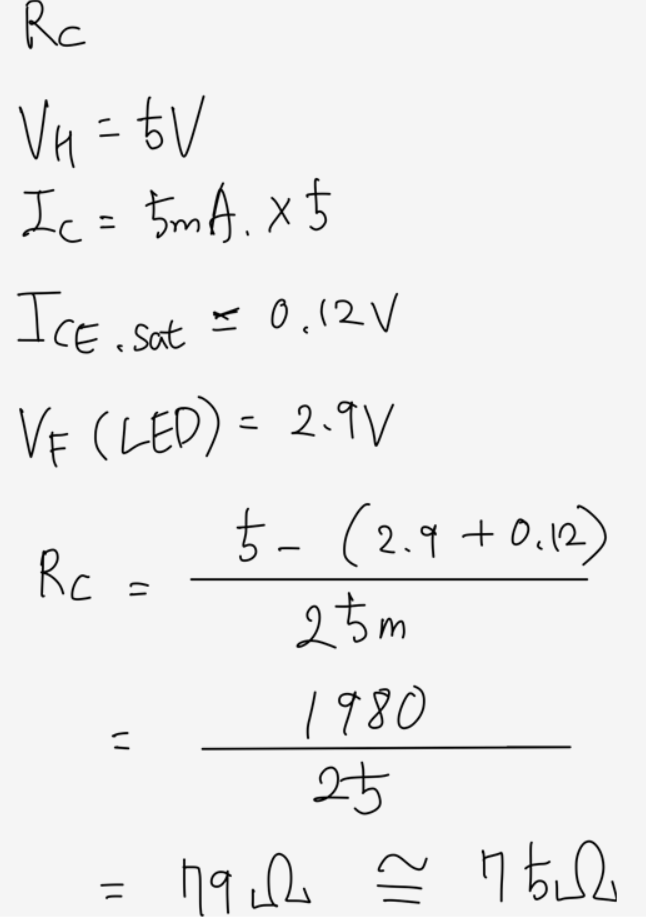 Rc
VH = 5V
Ic = 5mA. × 5
ICE.sat ≚ 0.12V
VF (LED) = 2.9V
Rc = 5 - (2.9 + 0.12)
25m
= 1980
25
= 79Ω ≅ 75Ω